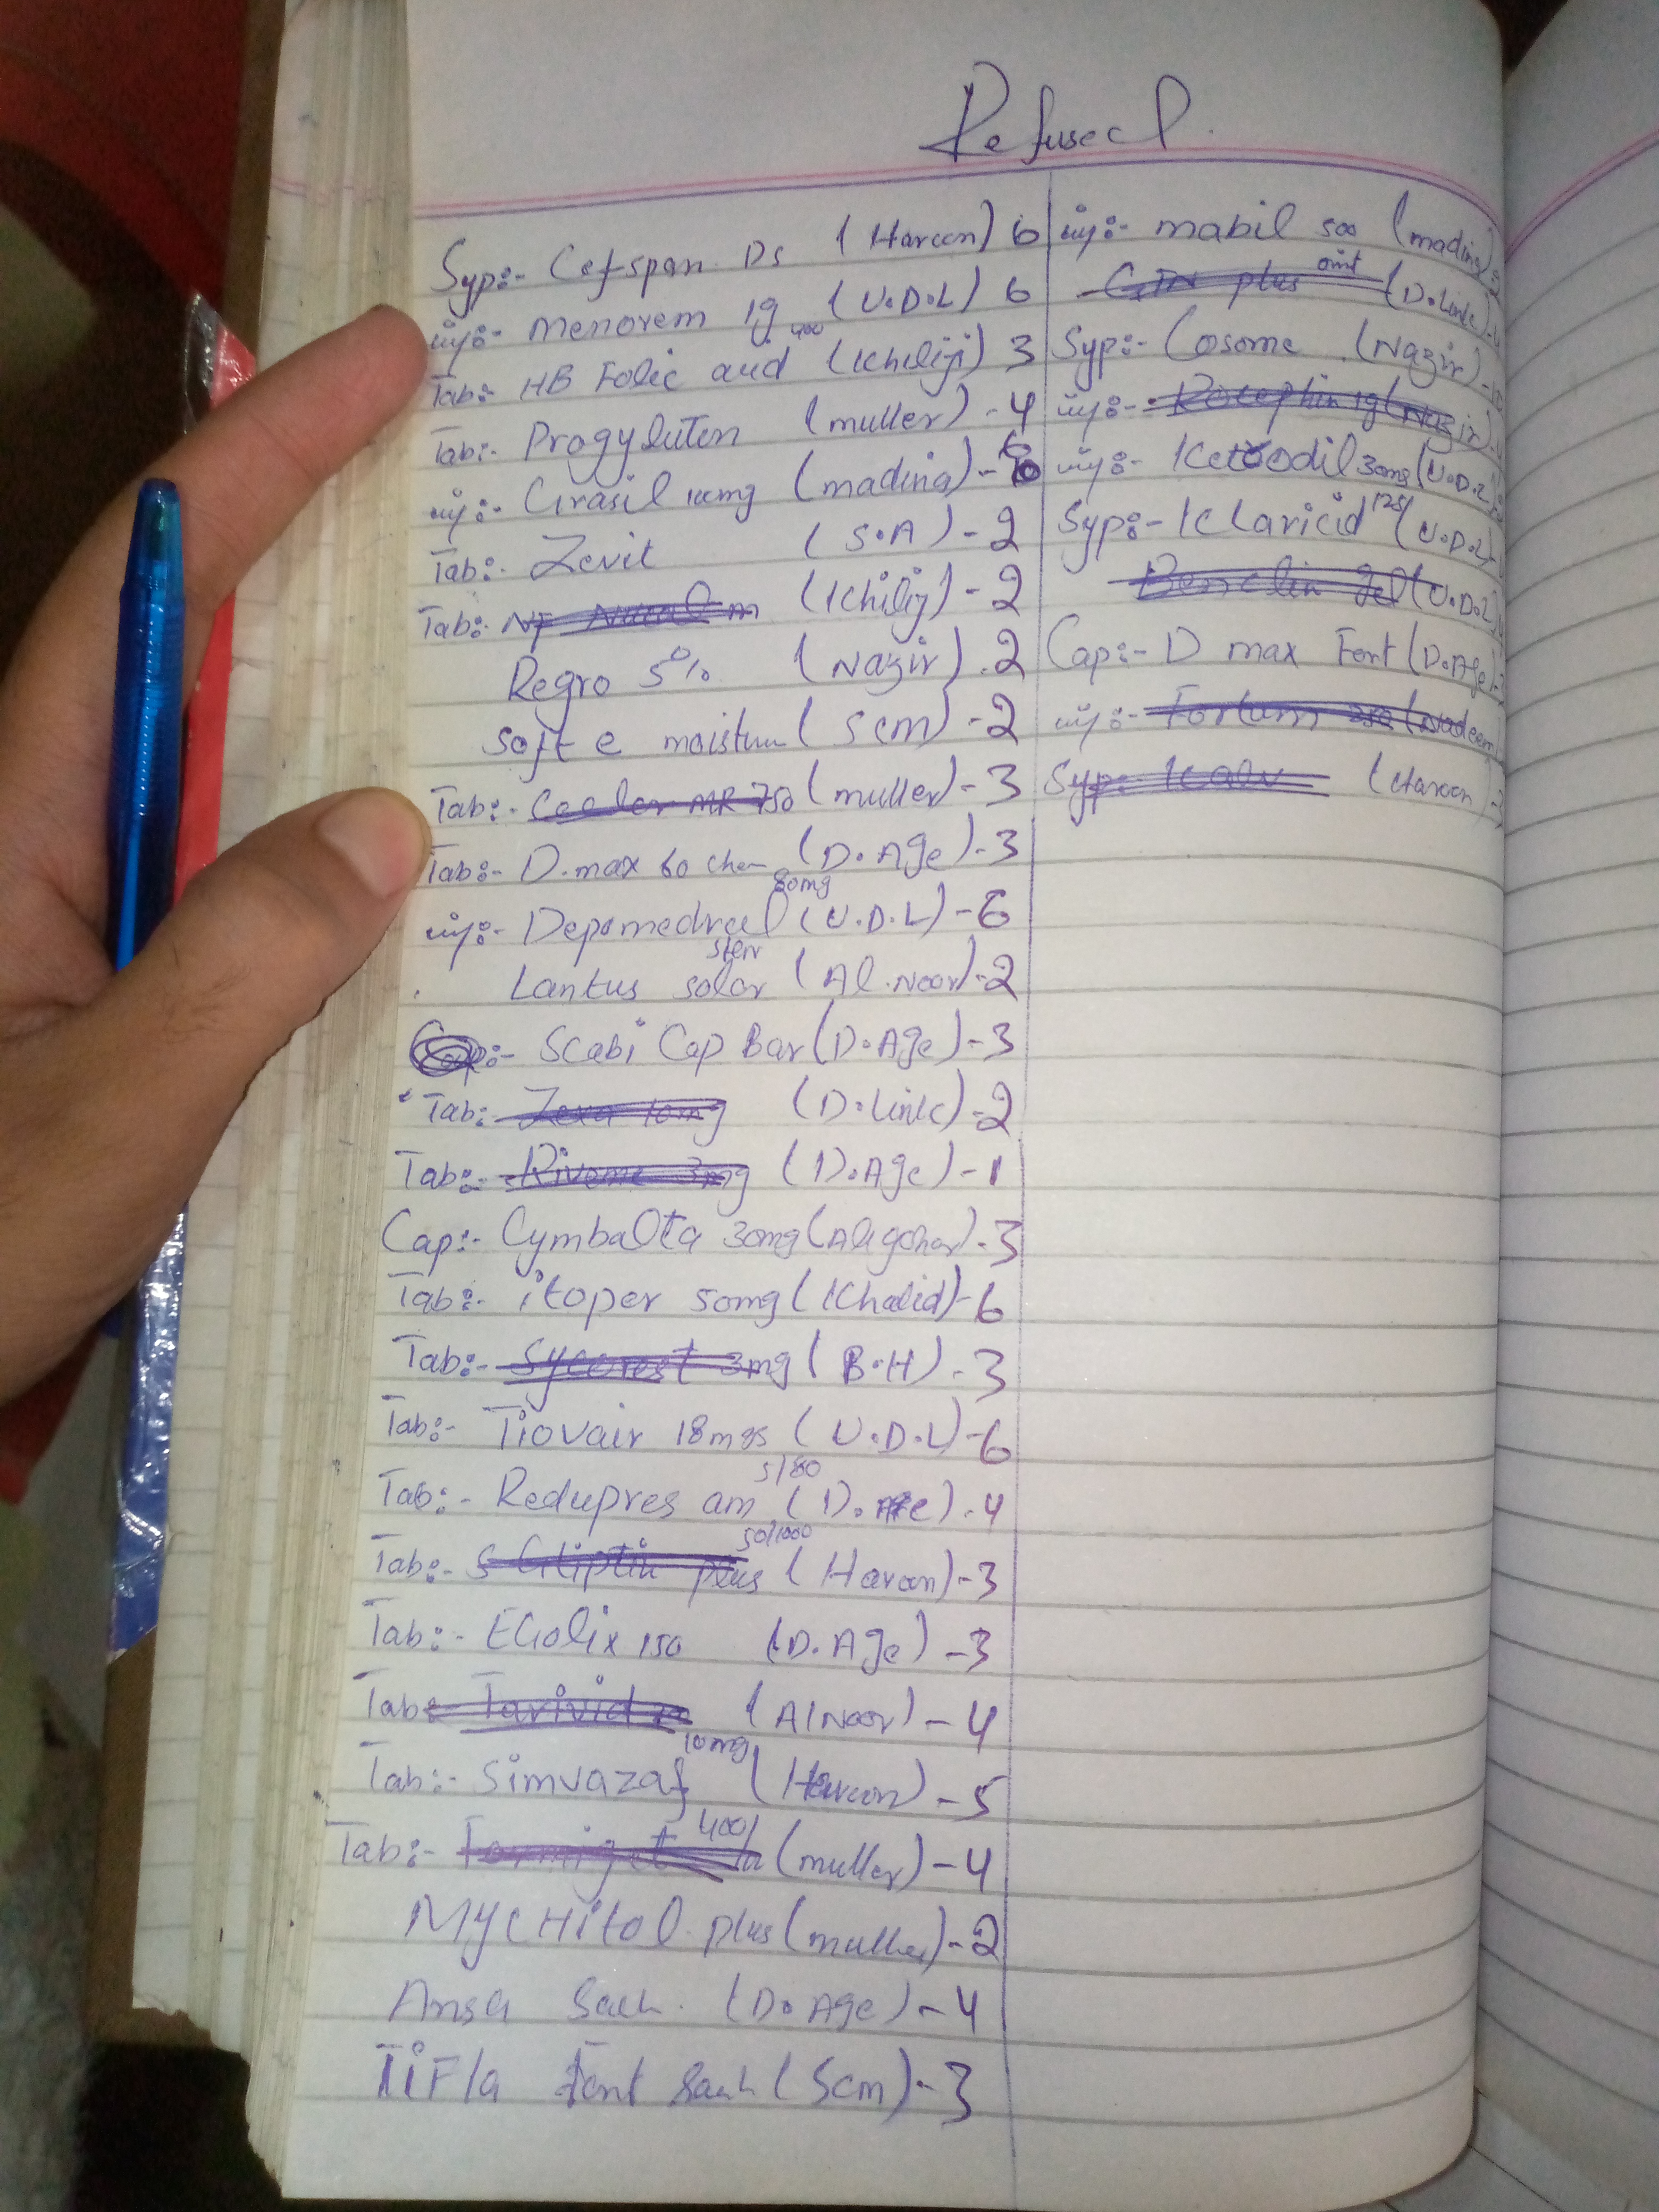 Refused.
Syp:- Cefspan Ds (Haroon) 6
inj:- menorem 1g (U.D.L) 6
Tab:- HB Folic acid 400 (Khiliji) 3
Tab:- Progyluton (muller) - 4
inj:- Grasil 100mg (madina) - 6
Tab:- Zevit (S.A) - 2
Tab:- NF (Khilij) - 2
Regro 5% (Nazir) - 2
Soft e moistur (Scm) - 2
Tab:- Ceclor MR 750 (muller) - 3
Tab:- D.max 60 chew (D.Age) - 3
inj:- Depomedrol 80mg (U.D.L) - 6
Lantus solor (Al.Noor) - 2
:- Scabi Cap Bar (D.Age) - 3
Tab:- Zexa 10mg (D.Link) - 2
Tab:- 3mg (D.Age) - 1
Cap:- Cymbalta 30mg (Aligohar) - 3
Tab:- itoper 50mg (Khalid) - 6
Tab:- Sycorest 3mg (B.H) - 3
Tab:- Tiovair 18mgs (U.D.L) - 6
Tab:- Redupres am 5/80 (D.Age) - 4
Tab:- S Gliptin plus 50/1000 (Haroon) - 3
Tab:- EGolix 150 (D.Age) - 3
Tab:- Tarivid (AlNoor) - 4
Tab:- Simvazaf 10mg (Haroon) - 5
Tab:- 400/ (muller) - 4
MyCHitol plus (muller) - 2
Ansa Sach. (D.Age) - 4
TiFla Font Sach (Scm) - 3
inj:- mabil 500 (madina)
plus oint (D.Link)
Syp:- Cosome (Nazir)
inj:- Rocephin 1g (Nazir)
inj:- Ketodil 30mg (U.D.L)
Syp:- Klaricid 125 (U.D.L)
gel (U.D.L)
Cap:- D max Fort (D.Age)
inj:- Fortum 250 (Nadeem)
Syp:- (Haroon)